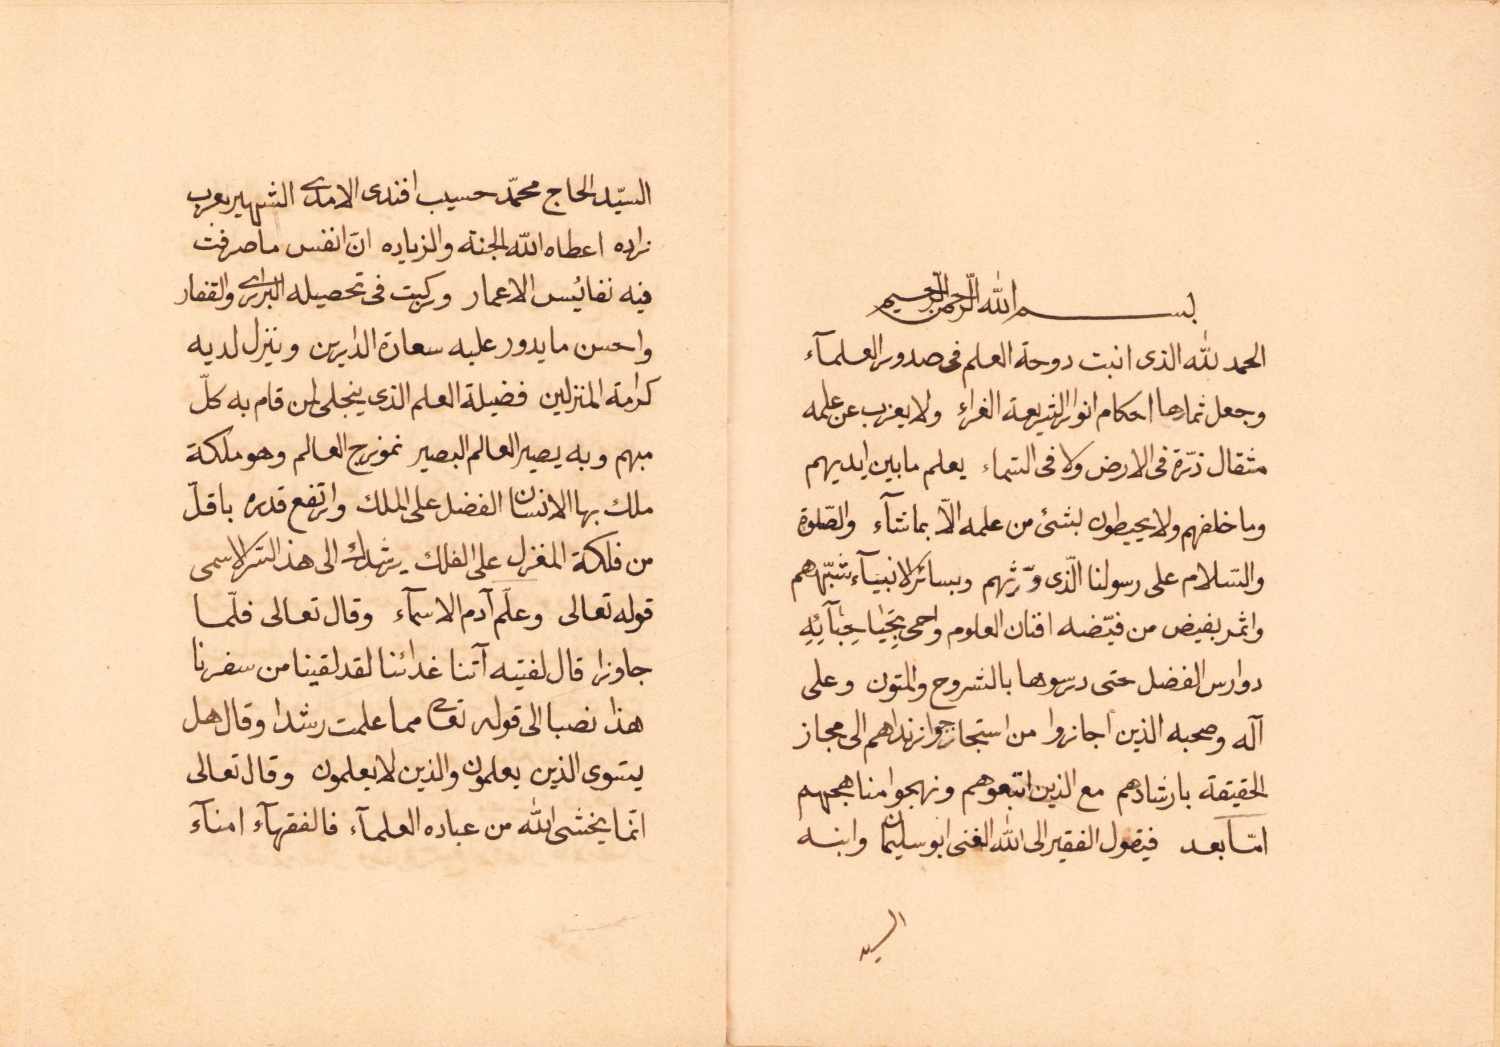 بســـم الله الرّحمن الرّحيم
الحمد للّه الذى انبت دوحة العلم فى صدور العلمآء
وجعل ثمارها احكام انوار الشريعة الغراء ولا يعزب عن علمه
مثقال ذرّة فى الارض ولا فى السّماء يعلم ما بين ايديهم
وما خلفهم ولا يحيطون بشئ من علمه الّا بما شآء والصّلوة
والسّلام على رسولنا الّذى ورّثهم وبسائر الانبيآء شبّههم
واثمر بفيض من فيّضه افنان العلوم واحمى
دوارس الفضل حتى درسوها بالشروح والمتون وعلى
آله وصحبه الذين اجازوا من استجاز جواز نداهم الى مجاز
الحقيقة بارشادهم مع الذين اتبعوهم ونهجوا مناهجهم
امّا بعد فيقول الفقير الى اللّه الغنى ابو سليمان وابنه
السيد
السيّد الحاج محمّد حسيب افندى الامدى الشهير بعرب
زاده اعطاه اللّه الجنة والزياده انّ انفس ما صرفت
فيه نفائيس الاعمار وركبت فى تحصيله البرارى والقفار
واحسن ما يدور عليه سعادة الدارين وينزل لديه
كرامة المنزلين فضيلة العلم الذى ينجلى لمن قام به كلّ
مبهم وبه يصير العالم البصير نموزج العالم وهو ملكة
ملك بها الانسان الفضل على الملك وارتفع قدره باقلّ
من فلكة المغزل على الفلك يرشدك الى هذا السّر الاسمى
قوله تعالى وعلّم آدم الاسمآء وقال تعالى فلمّا
جاوزا قال لفتيه آتنا غدائنا لقد لقينا من سفرنا
هذا نصبا الى قوله تعالى مما علمت رشدا وقال هل
يستوى الذين يعلمون والذين لا يعلمون وقال تعالى
انّما يخشى اللّه من عباده العلمآء فالفقهآء امنآء